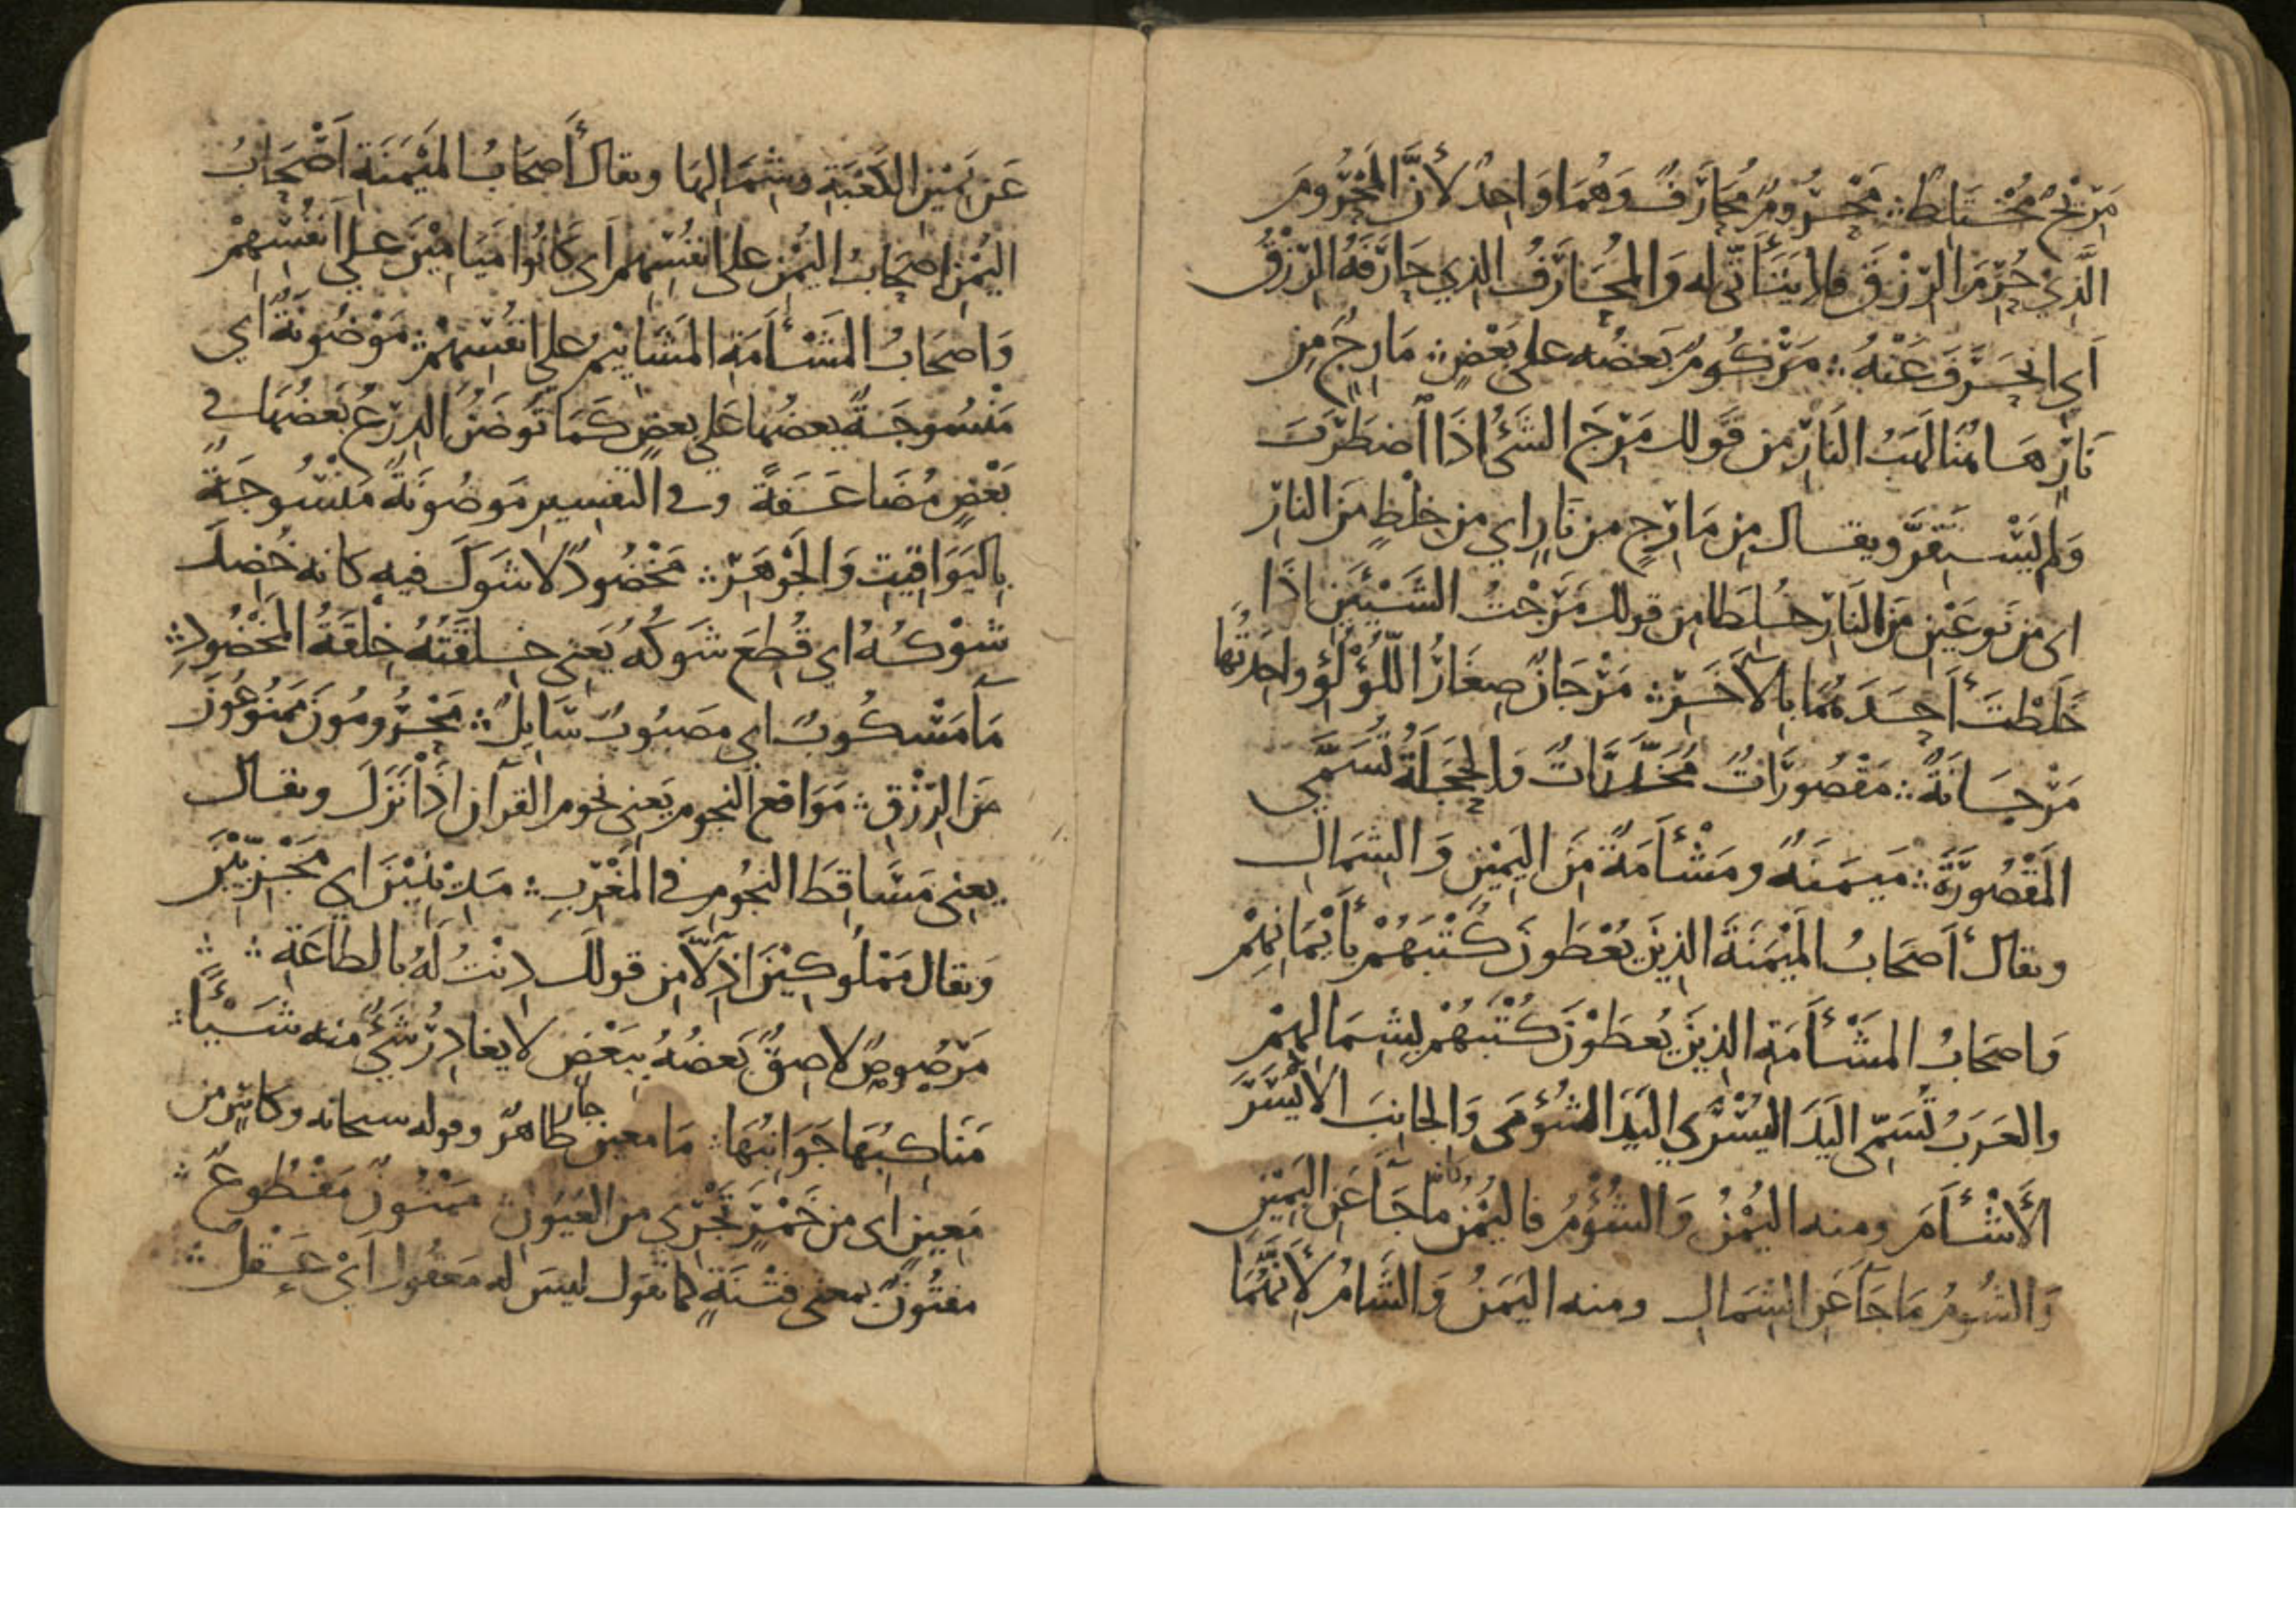 مَرِيجٌ مُخْتَلِطٌ ∴ مَحْرُومٌ مُحَارَفٌ وَهُمَا وَاحِدٌ لأَنَّ المَحْرُومَ
الَّذِيْ حُرِمَ الرِّزْقَ فلا يَتَأَتّى له وَالمُحَارَفُ الذِي حَارَفَهُ الرِّزْقُ
اَي انحَرَفَ عَنْهُ ∴ مَرْكُومٌ بَعضُه على بَعْضٍ ∴ مَارِجٌ مِن
نَارٍ هَاهُنَا لَهَبُ النَارِ من قَولك مَرَجَ الشَيْءُ اذَا اضطَرَبَ
وَلم يَسْتَقِرَّ ويقال مِن مَارِجٍ من نَارٍ اي من خِلْطٍ مَن النارِ
اى من نَوعَيْنِ مَن النَارِ خُلِطَا من قولك مَرَجْتُ الشَيْئَينِ اذَا
خَلَطْتَ أَحَدَهُمَا بِالآخَرِ ∴ مَرْجَانٌ صِغَارُ اللُّؤْلُؤِ واحِدَتُهَا
مَرْجَانَةٌ ∴ مَقْصُورَاتٌ مُخَدَّرَاتٌ وَالحَجَلَةُ تُسَمَّى
المَقْصُورَةَ ∴ مَيمَنَةٌ ومَشْأَمَةٌ مِنَ اليَمِيْنِ وَالشِمَالِ
ويقال أَصَحَابُ المَيْمَنَةَ الذِينَ يُعْطَونَ كُتُبَهُمْ بأَيْمَانِهِمْ
وَاصحَابُ المَشْأَمَةِ الذِينَ يُعطَوْنَ كُتُبَهُمْ بِشِمَالِهِمْ
والعَرَبُ تُسَمِّى اليَدَ اليُسْرَي اليَدَ الشُؤْمَى وَالجانِبَ الأَيْسَرَ
الأَشْأَمَ ومنه اليُمْنُ وَالشُؤْمُ فاليُمْنُ كأنه ما جَآءَ عَن اليَمِيْنِ
وَالشُومُ مَا جَآءَ عَن الشِمَالِ ومنه اليَمَنُ وَالشَامُ لأَنَّهُمَا
عَن يَمِيْنِ الكَعْبَةِ وشِمَالِهَا ويقال أَصحَابُ المَيْمَنَةِ اَصْحَابُ
اليُمْنِ اصحَابُ اليُمْنِ على انفُسِهِم اَى كَانُوا مَيَامِيْنَ على اَنفُسِهِمْ
وَاصحَابُ المَشْأَمَةِ المَشَائِيم على انفُسِهِمْ ∴ مَوْضُونَةٌ اي
مَنْسُوجَةٌ بعضُها عَلى بعضٍ كَمَا تُوضَنُ الدِرْعُ بَعضُهَا في
بَعْضٍ مُضَاعَفَةً وفي التفسِيرِ مَوضُونَةٌ مَنْسُوجَةٌ
بِاليَوَاقِيتِ وَالجَوْهَرِ ∴ مَخْضُودٌ لا شَوكَ فيه كانه خُضِدَ
شَوْكُهُ اي قُطِعَ شَوكُهُ يَعني خِلقَتُهُ خِلقَةُ المَخْضُودِ ∴
مَآءٌ مَسْكُوبٌ اي مَصبُوبٌ سَايِلٌ ∴ مَحْرُومُونَ مَمنُوعُونَ
مَن الرِّزْقِ ∴ مَوَاقع النجوم يَعني نجُوم القرآن اذَا نَزَلَ ويقال
يعني مَسَاقِطَ النجُومِ في المَغْرِبِ ∴ مَدِيْنِيْنَ اي مَجْزِيِّيْنَ
وَيقال مَمْلُوكِيْنَ اذِلَّآءَ من قولك دِنْتُ لَهُ بالطاعَةِ ∴
مَرْصُوصٌ لاصِقٌ بَعضُهُ ببَعْضٍ لا يغادِرُ شَيْءٌ منه شَيْئًا ∴
مَنَاكِبِهَا جَوَانِبُهَا ∴ مَا معينٍ جارٍ ظاهرٌ وقوله سبحانه وكاسٍ من
مَعِينٍ اى من خَمْرٍ تَجْرِي من العُيُونِ ∴ مَمْنُونٌ مَقْطُوعٌ ∴
مفتُونٌ بمعنى فتْنَةٍ كما تقول ليسَ له مَعقُول اَيْ عَقْلٌ ∴